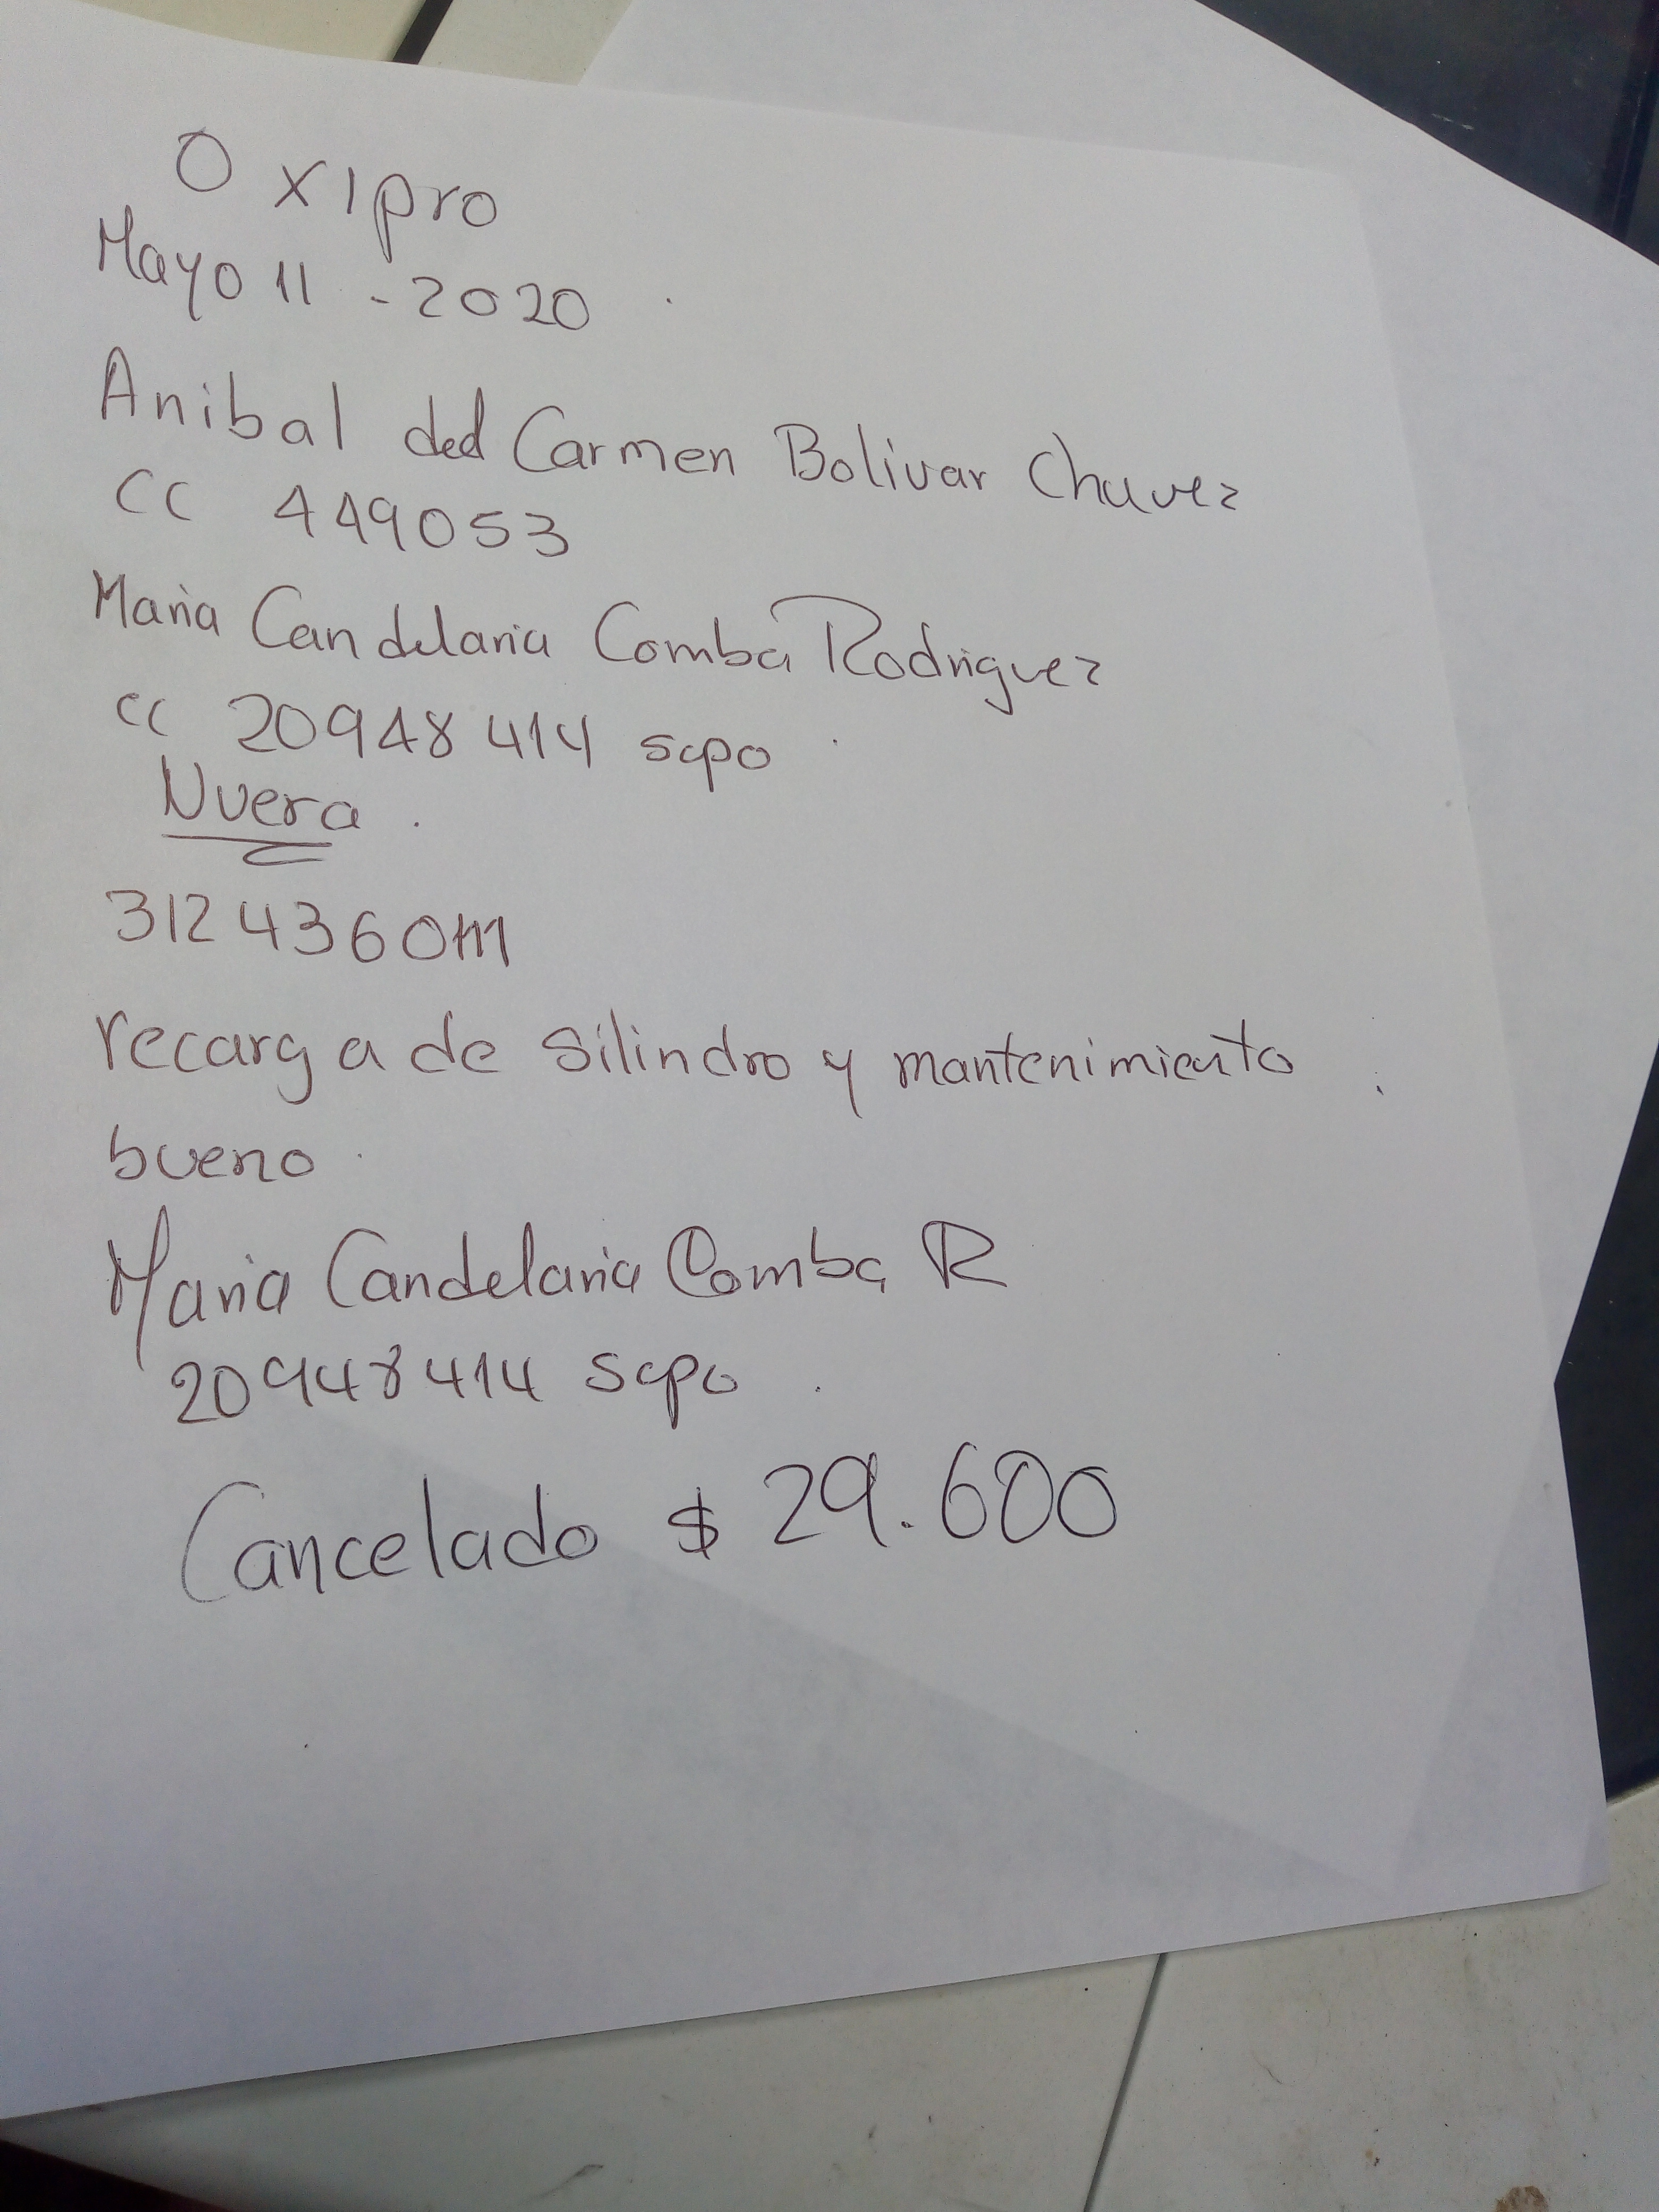 Oxipro
Mayo 11 - 2020
Anibal del Carmen Bolivar Chavez
CC 449053
Maria Candelaria Comba Rodriguez
CC 20948414 scpo
Nuera.
recarga de silindro y mantenimiento
bueno.
Maria Candelaria Comba R
20948414 scpo
Cancelado $ 29.600